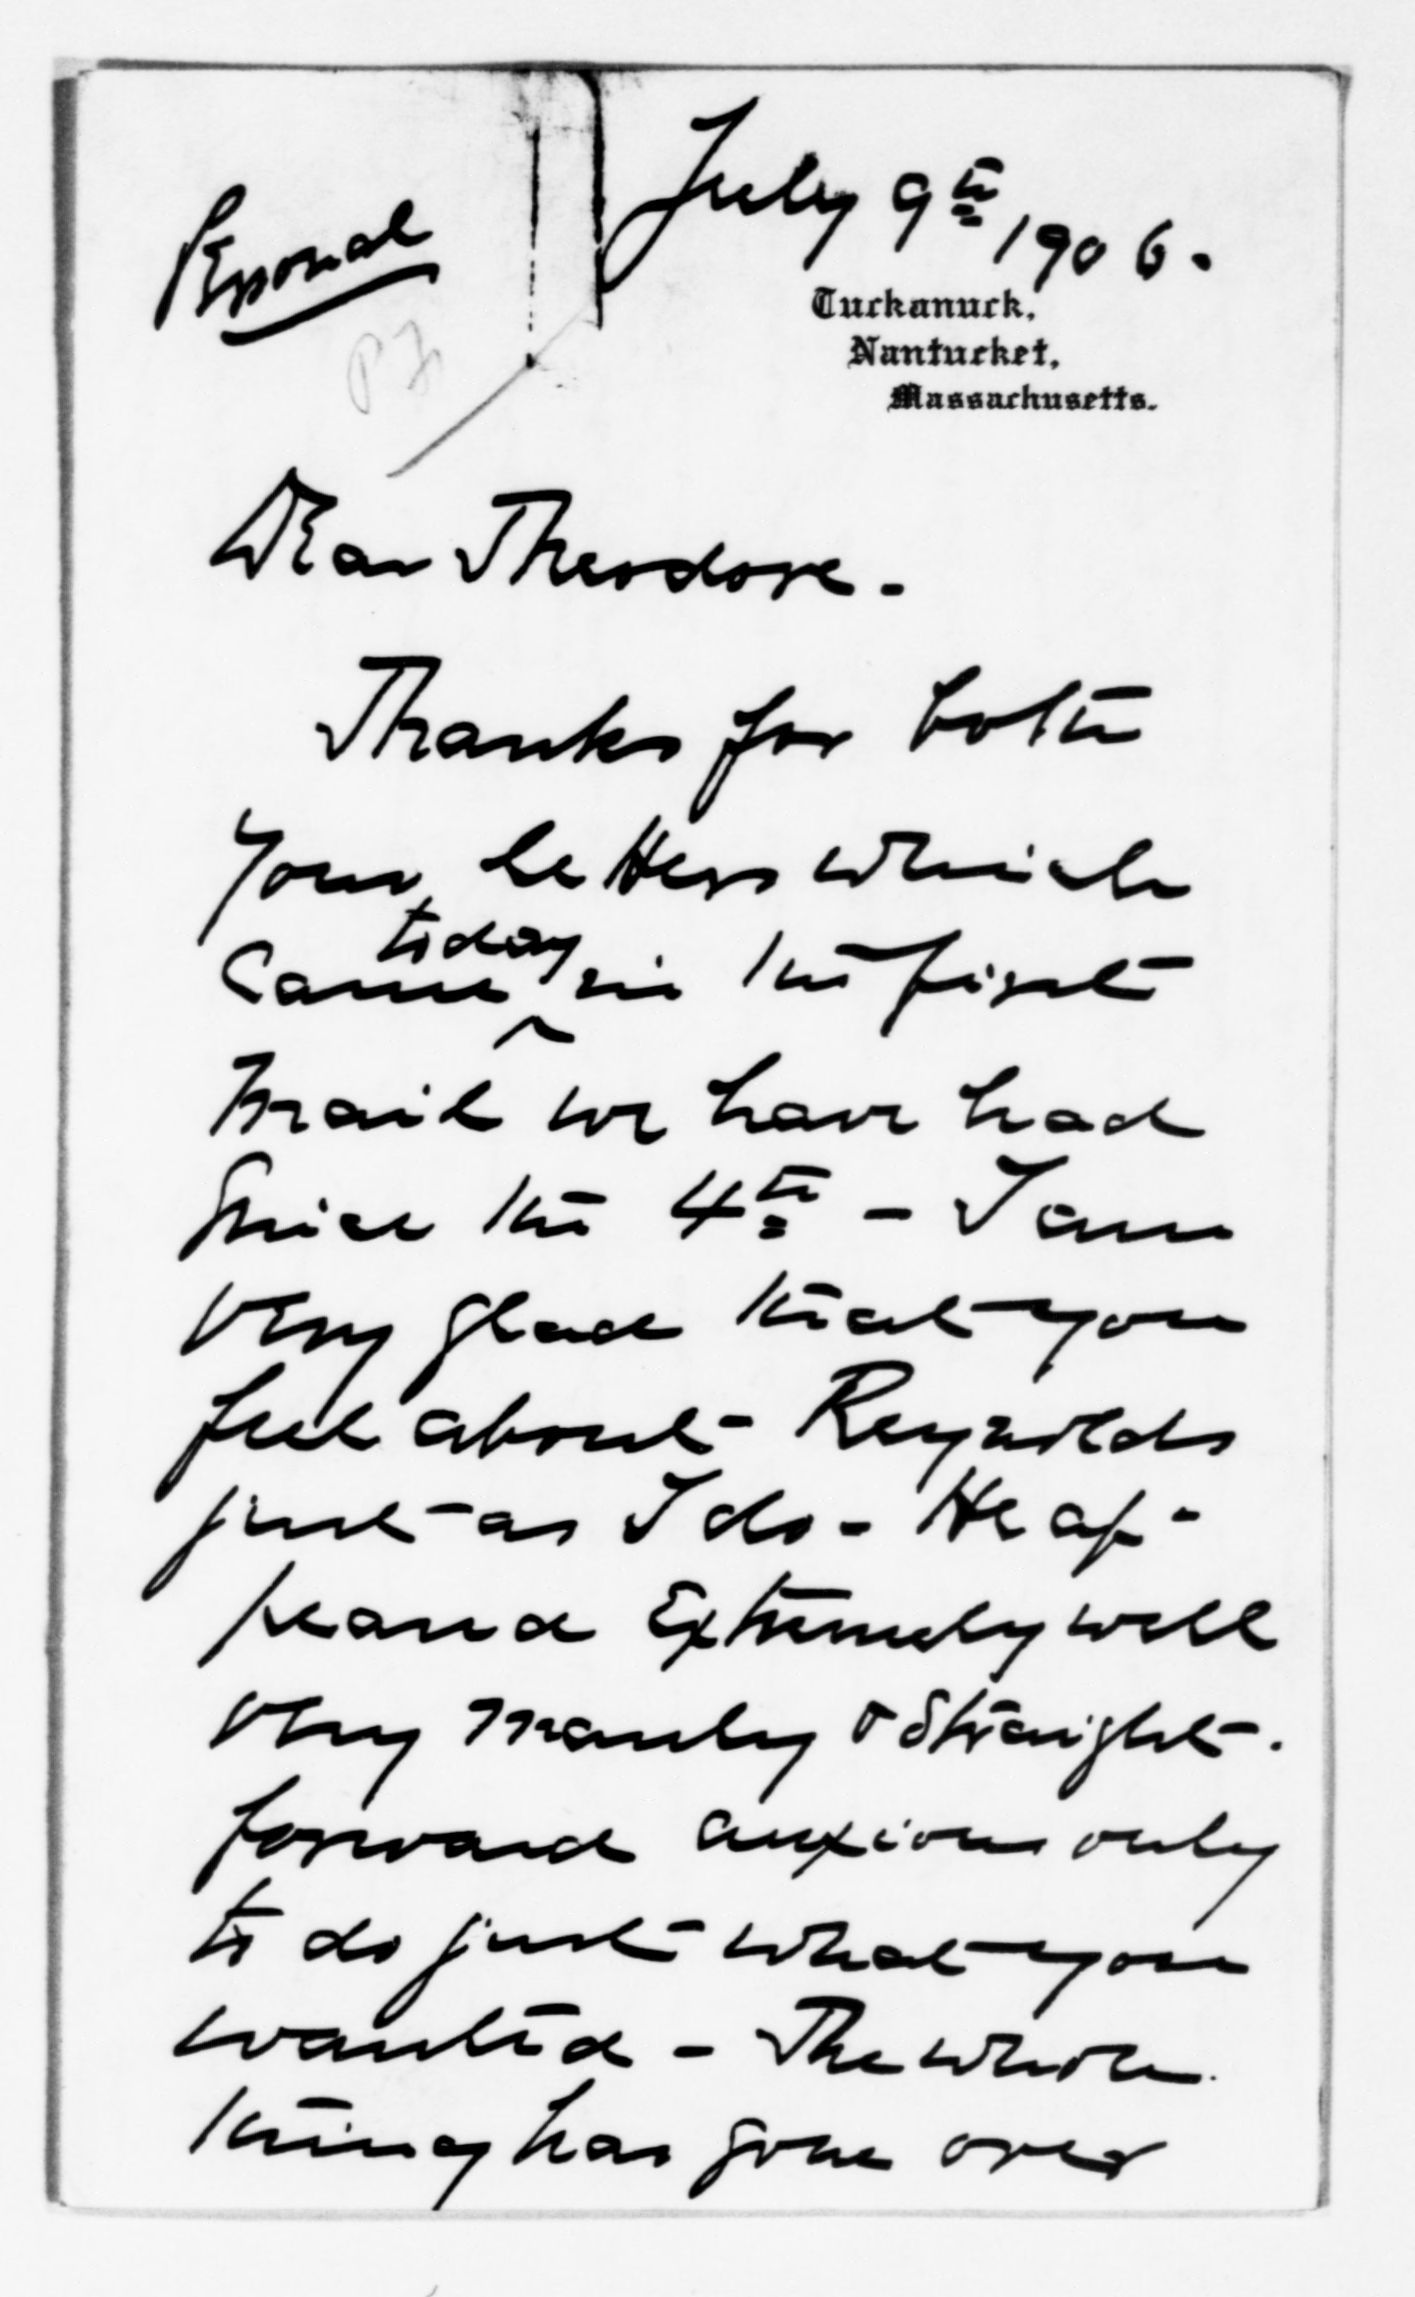 Personal
July 9th 1906.
Tuckanuck,
Nantucket,
Massachusetts.
PF
Dear Theodore -
Thanks for both
your letters which
came today in the first
mail we have had
since the 4th - I am
very glad that you
feel about Reynolds
just as I do - He ap-
peared extremely well
very manly & straight-
forward anxious only
to do just what you
wanted - The whole
thing has gone over